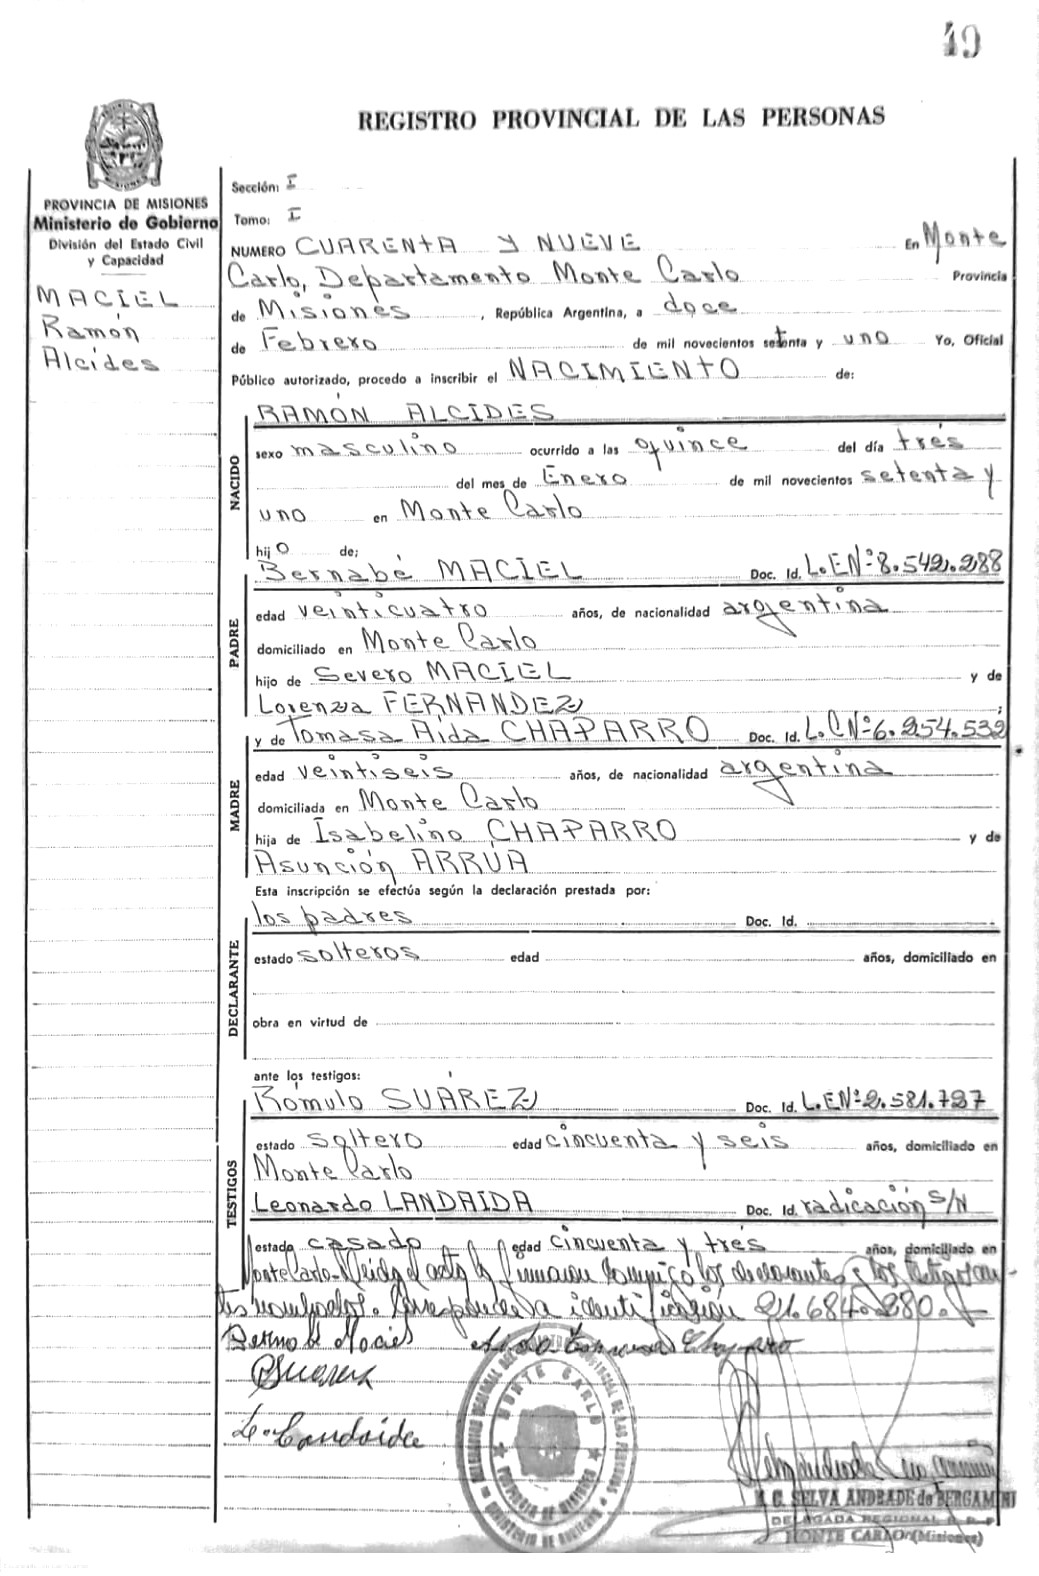 49
REGISTRO PROVINCIAL DE LAS PERSONAS
PROVINCIA DE MISIONES
Ministerio de Gobierno
División del Estado Civil
y Capacidad
MACIEL
Ramón
Alcides
Sección: I
Tomo: I
NUMERO CUARENTA Y NUEVE En Monte
Carlo, Departamento Monte Carlo Provincia
de Misiones, República Argentina, a doce
de Febrero de mil novecientos setenta y uno Yo, Oficial
Público autorizado, procedo a inscribir el NACIMIENTO de:
NACIDO
RAMÓN ALCIDES
sexo masculino ocurrido a las quince del día trés
del mes de Enero de mil novecientos setenta y
uno en Monte Carlo
hijo de;
PADRE
Bernabé MACIEL Doc. Id. L.EN°8.542.288
edad veinticuatro años, de nacionalidad argentina
domiciliado en Monte Carlo
hijo de Severo MACIEL y de
Lorenza FERNANDEZ ;
MADRE
y de Tomasa Aida CHAPARRO Doc. Id. L.CN°6.254.532
edad veintiseis años, de nacionalidad argentina
domiciliada en Monte Carlo
hija de Isabelino CHAPARRO y de
Asunción ARRÚA
Esta inscripción se efectúa según la declaración prestada por:
DECLARANTE
los padres Doc. Id.
estado solteros edad años, domiciliado en
obra en virtud de
ante los testigos:
TESTIGOS
Rómulo SUÁREZ Doc. Id. L.EN°2.581.727
estado soltero edad cincuenta y seis años, domiciliado en
Monte Carlo
Leonardo LANDAIDA Doc. Id. radicación S/N
estado casado edad cincuenta y trés años, domiciliado en
Monte Carlo-Leido el acta la firmaron conmigo los declarantes y los testigos an-
tes nombrados. Corresponde a identificación 21.684.280.
Bernabé Maciel Aida Tomasa Chaparro
RSuarez
L. Landaida
MONTE CARLO
PROVINCIA DE MISIONES
M. C. SELVA ANDRADE de BERGAMINI
DELEGADA REGIONAL R. P. P.
MONTE CARLO (Misiones)